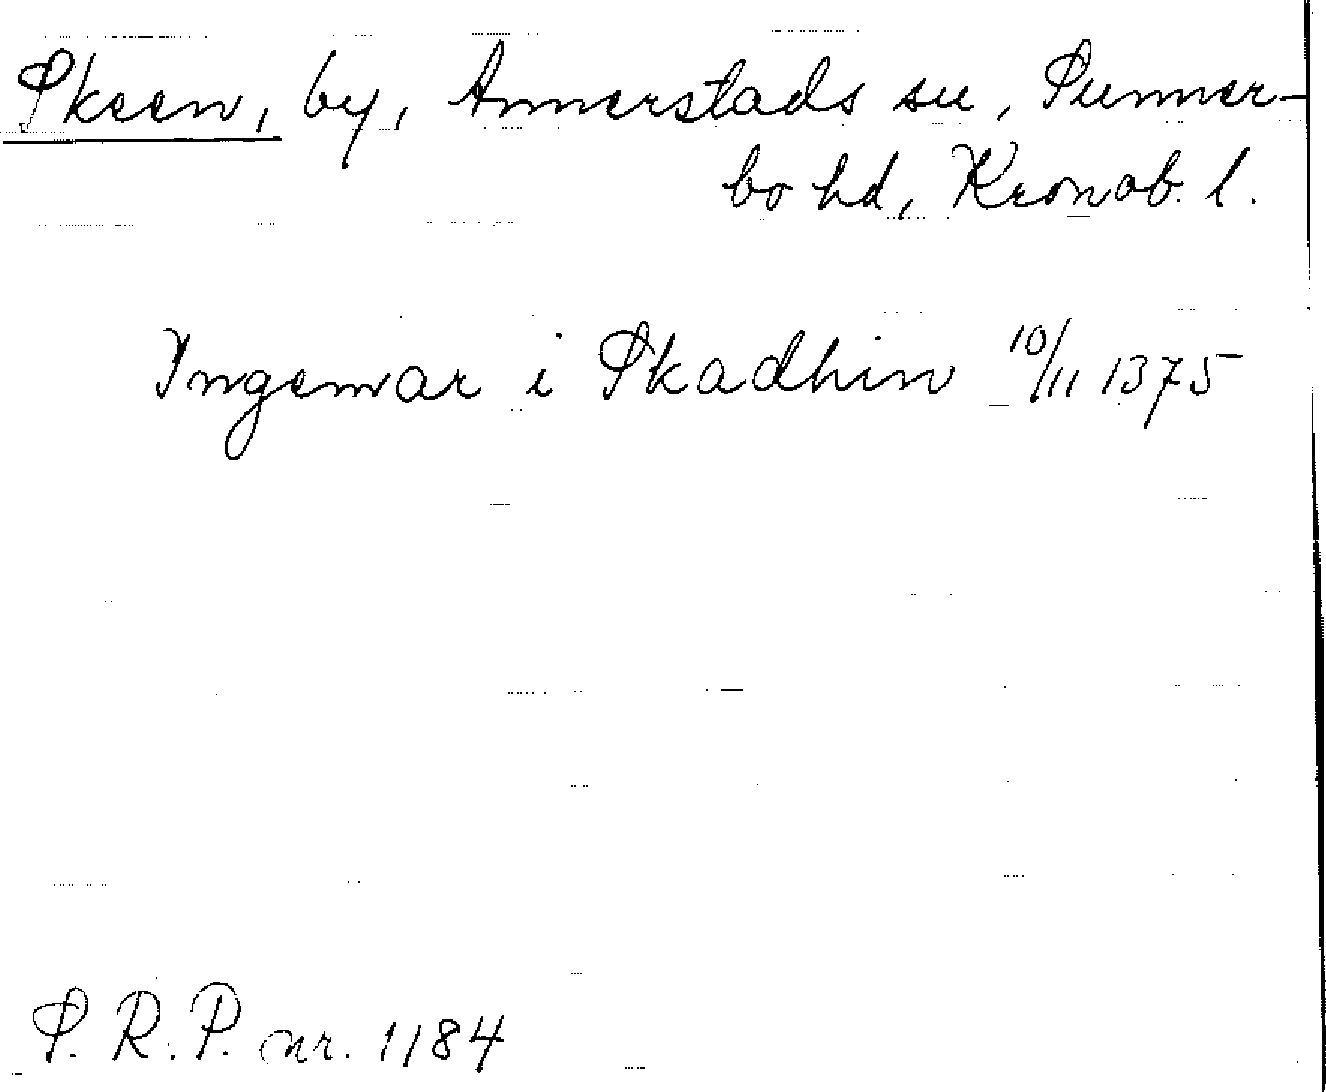 Skeen, by, Annerstads sn, Sunner-
bo hd, Kronob. l.
Ingemar i Skadhin 10/11 1375
S. R. P. nr. 1184